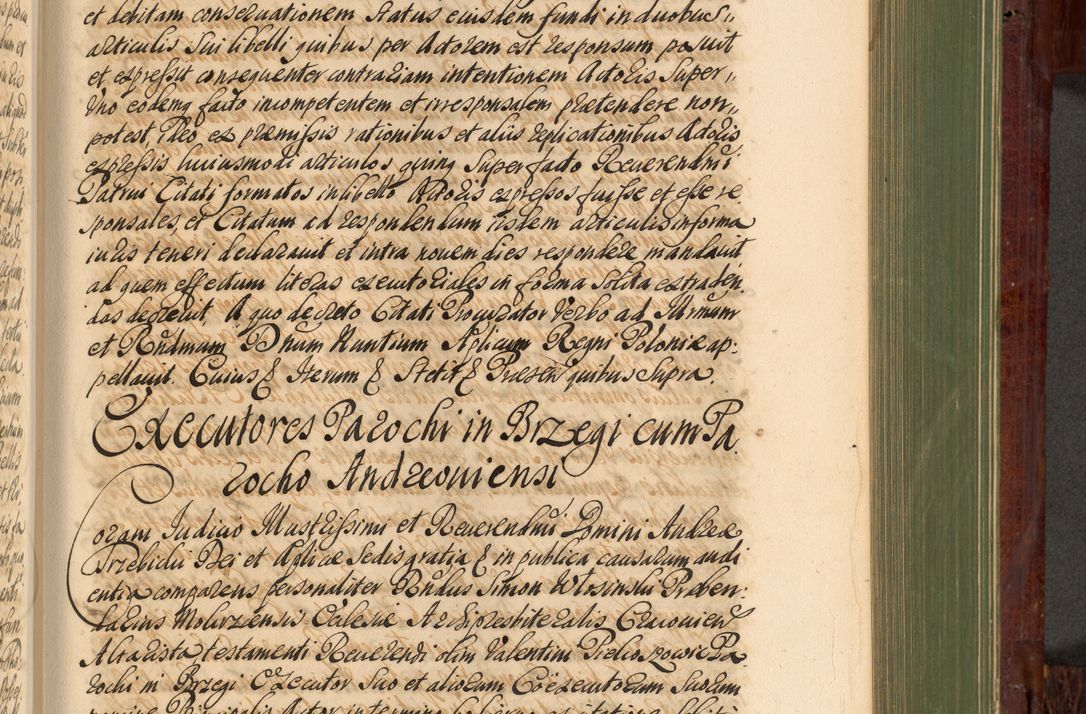 et debitam conseruationem status eiusdem fundi in duobus
articulis sui libelli quibus per Actorem est responsum posuit
et expressit consequenter contrariam intentionem Actoris super
Uno eodemq facto incompetentem et irresponsalem praetendere non
potest, Ideo ex praemissis rationibus et aliis replicationibus Actoris
expressis huiusmodi articulos super facto Reuerendmi
Patrui Citati formatos in libello Actoris expressos fuisse et esse re
sponsales, et Citatum ad respondendum iisdem articulis in forma
iuris teneri declarauit et intra nouem dies respondere mandauit
ad quem effectum literas executoriales in forma solita extraden
das decreuit. A quo decreto Citati Procurator Verbo ad Illrmum
et Rndmum Dnum Nuntium Aplicum Regni Poloniae ap:
pellauit. Cuius & Iterum & Stetit & Praesen quibus supra.
Executores Parochi in Brzegi cum Pa
rocho Andreouiensi
Coram Iudicio Illustrissimi et Reuerendmi Domini Andreae
Trzebicki Dei et Aplicae Sedis gratia & in publica causarum audi
entia comparens personaliter Rndus Simon Praeben:
darius Ecclesiae Archipresbiteralis Cracouien
Altarista testamenti Reuerendi olim Valentini Pa
rochi in Brzegi Executor suo et aliorum Coexecutorum suorum
nomine Principalis Actor in termino